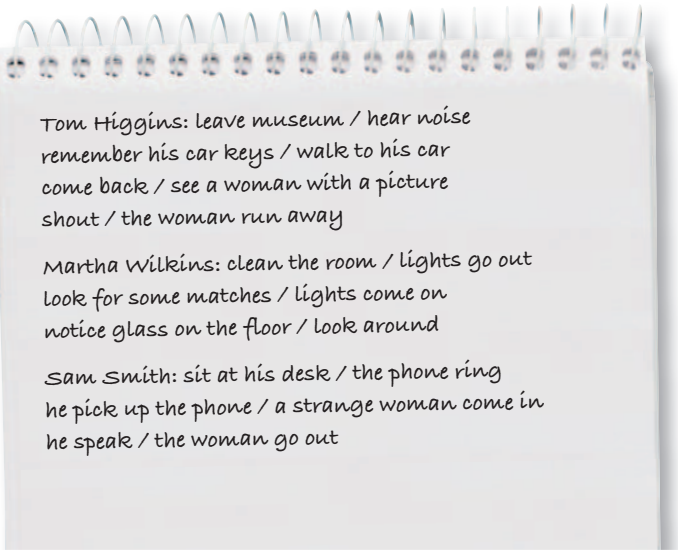 Tom Higgins: leave museum / hear noise
remember his car keys / walk to his car
come back / see a woman with a picture
shout / the woman run away
Martha Wilkins: clean the room / lights go out
look for some matches / lights come on
notice glass on the floor / look around
Sam Smith: sit at his desk / the phone ring
he pick up the phone / a strange woman come in
he speak / the woman go out